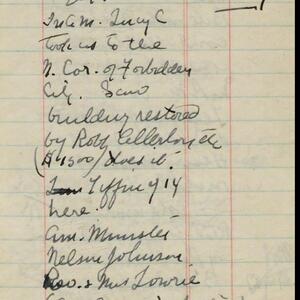 In a.m. Lucy C
took us to the
N. Cor. of Forbidden
City. Saw
building restored
by Robt
($4500/ does it.
Tiffin of 14
here.
Am. Minister
Nelson Johnson
Rev. & Mrs Lowrie